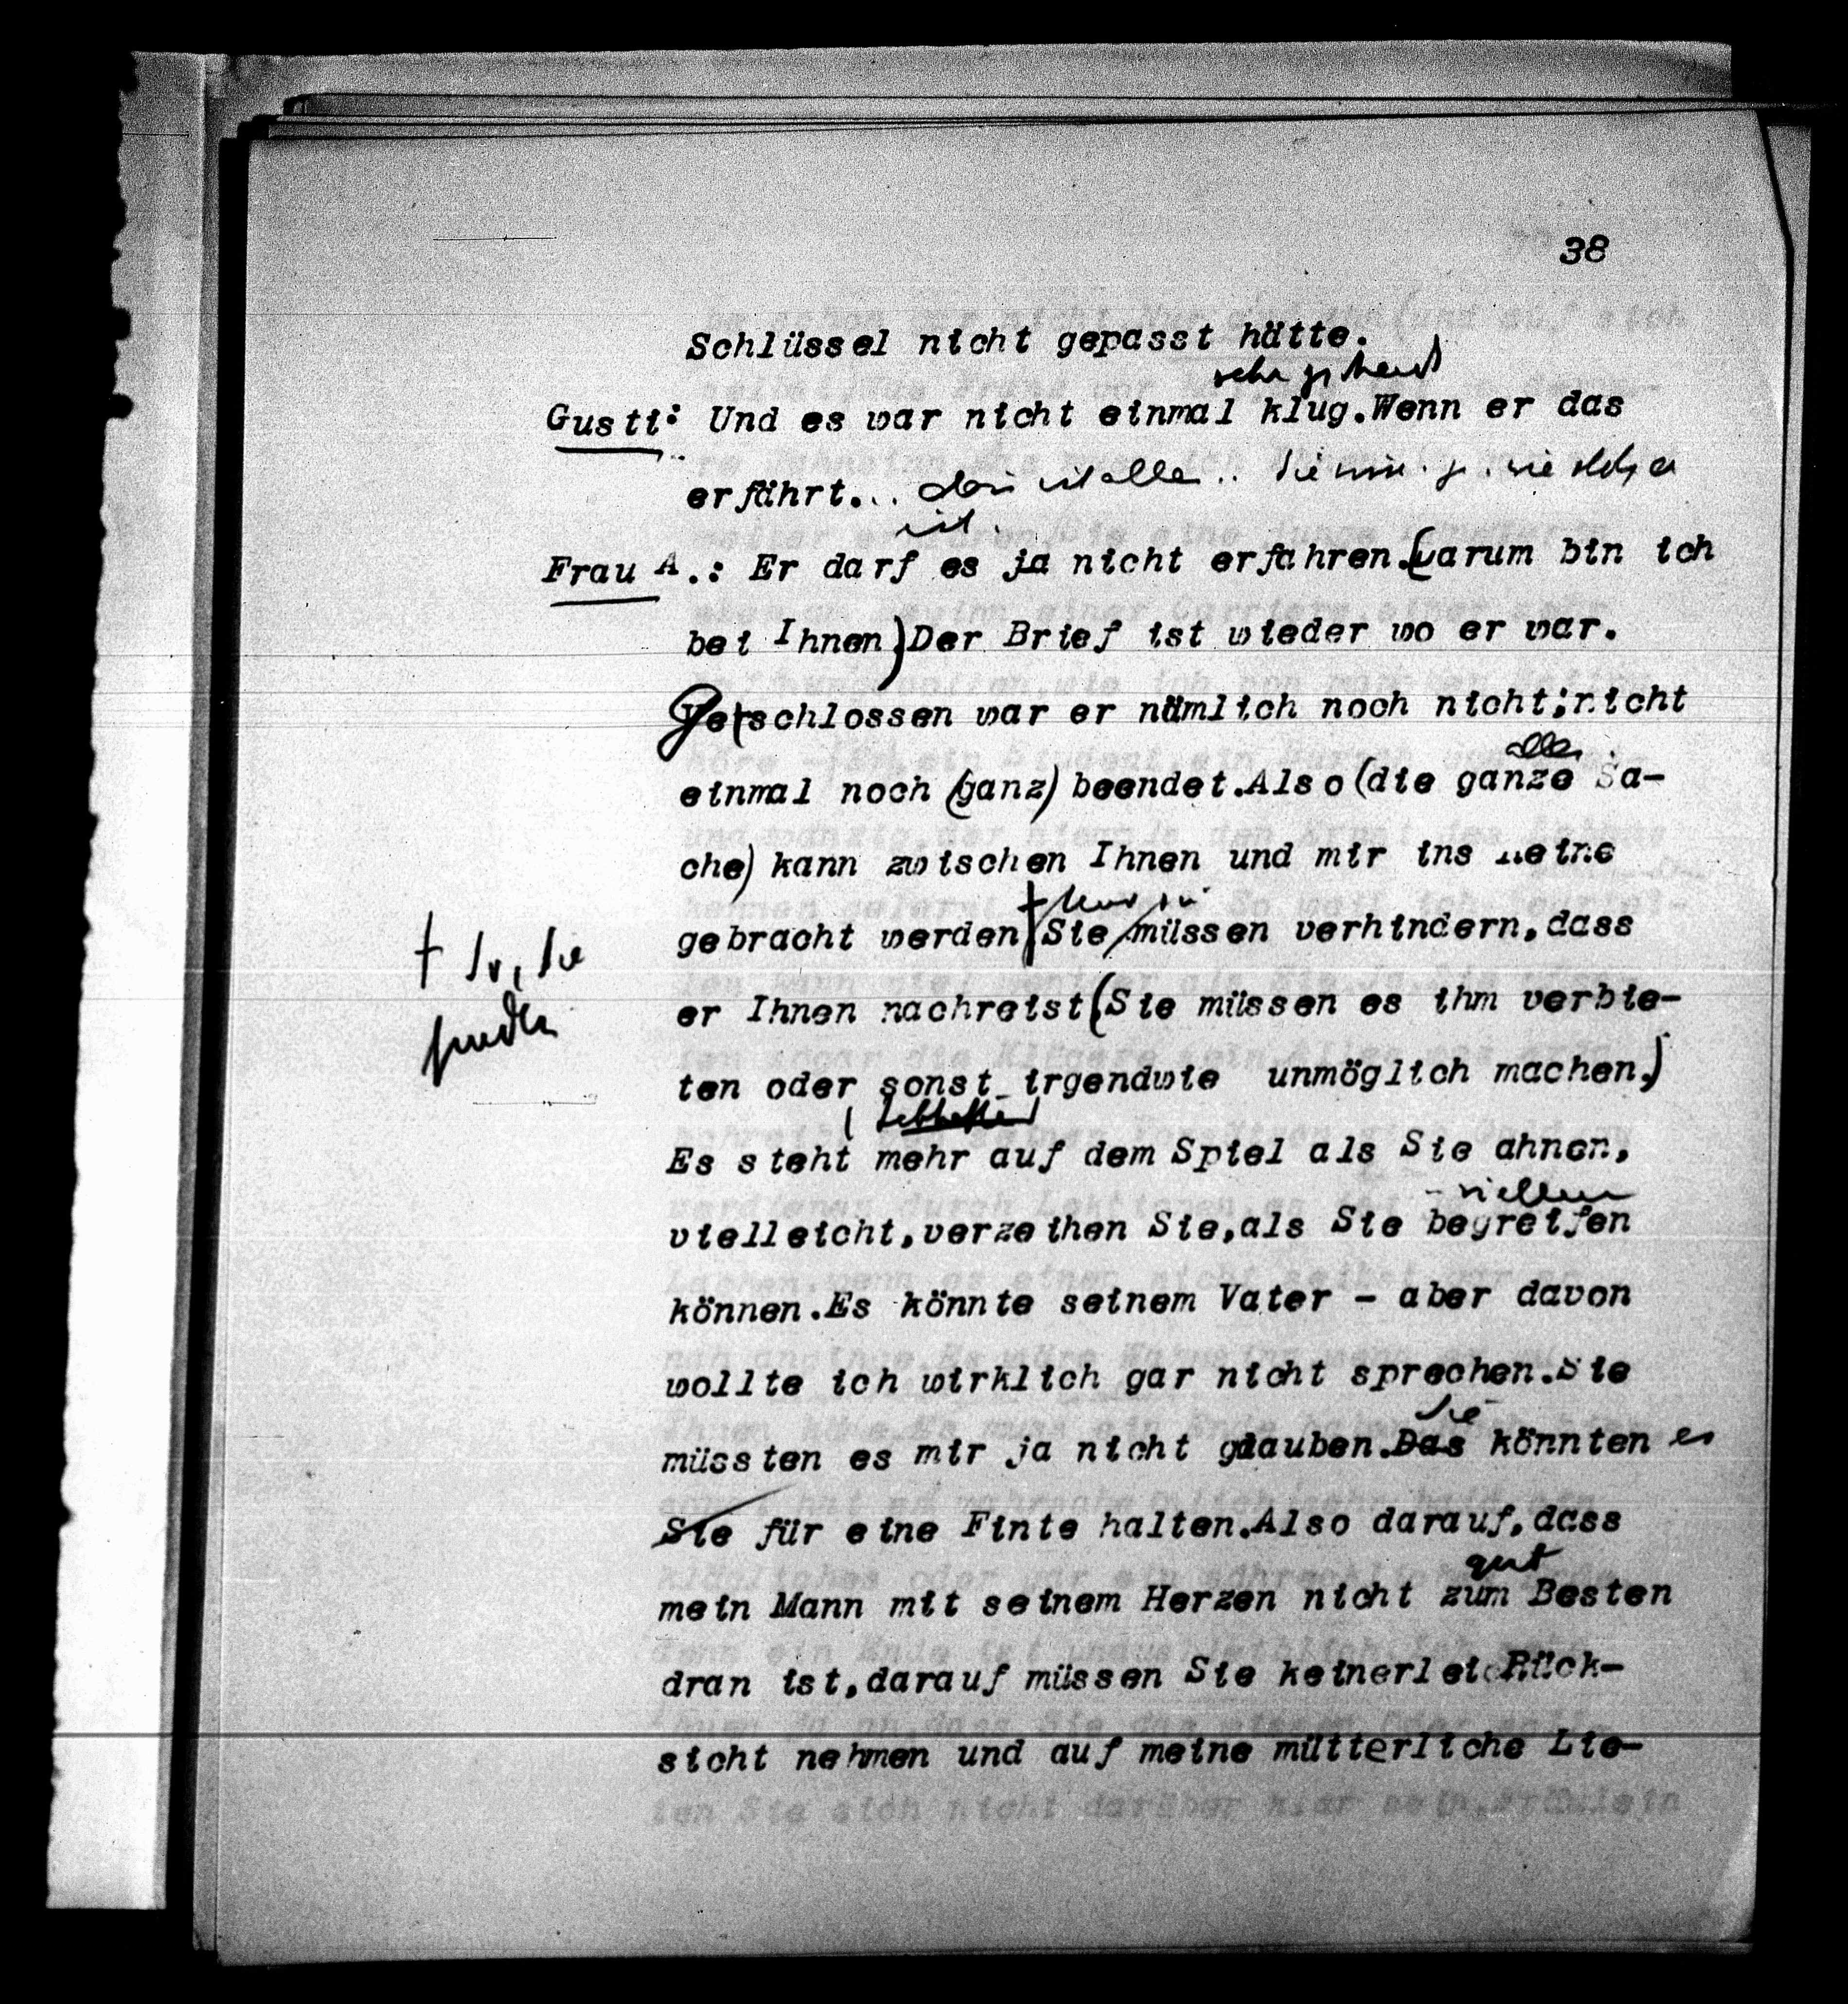 38
Schlüssel nicht gepasst hätte.
Gusti: Und es war nicht einmal klug.Wenn er das
erfährt...
ist.
Frau A.: Er darf es ja nicht erfahren.(Darum bin ich
bei Ihnen)Der Brief ist wieder wo er war.
Verschlossen war er nämlich noch nicht;nicht
alles
einmal noch (ganz) beendet.Also (die ganze Sa-
che) kann zwischen Ihnen und mir ins Reine
gebracht werden Sie müssen verhindern,dass
er Ihnen nachreist(Sie müssen es ihm verbie-
ten oder sonst irgendwie unmöglich machen.)
Es steht mehr auf dem Spiel als Sie ahnen,
vielleicht,verzeihen Sie,als Sie begreifen
können.Es könnte seinem Vater - aber davon
wollte ich wirklich gar nicht sprechen.Sie
Sie
müssten es mir ja nicht glauben.Das könnten es
Sie für eine Finte halten.Also darauf,dass
gut
mein Mann mit seinem Herzen nicht zum Besten
dran ist,darauf müssen Sie keinerlei Rück-
sicht nehmen und auf meine mütterliche Lie-